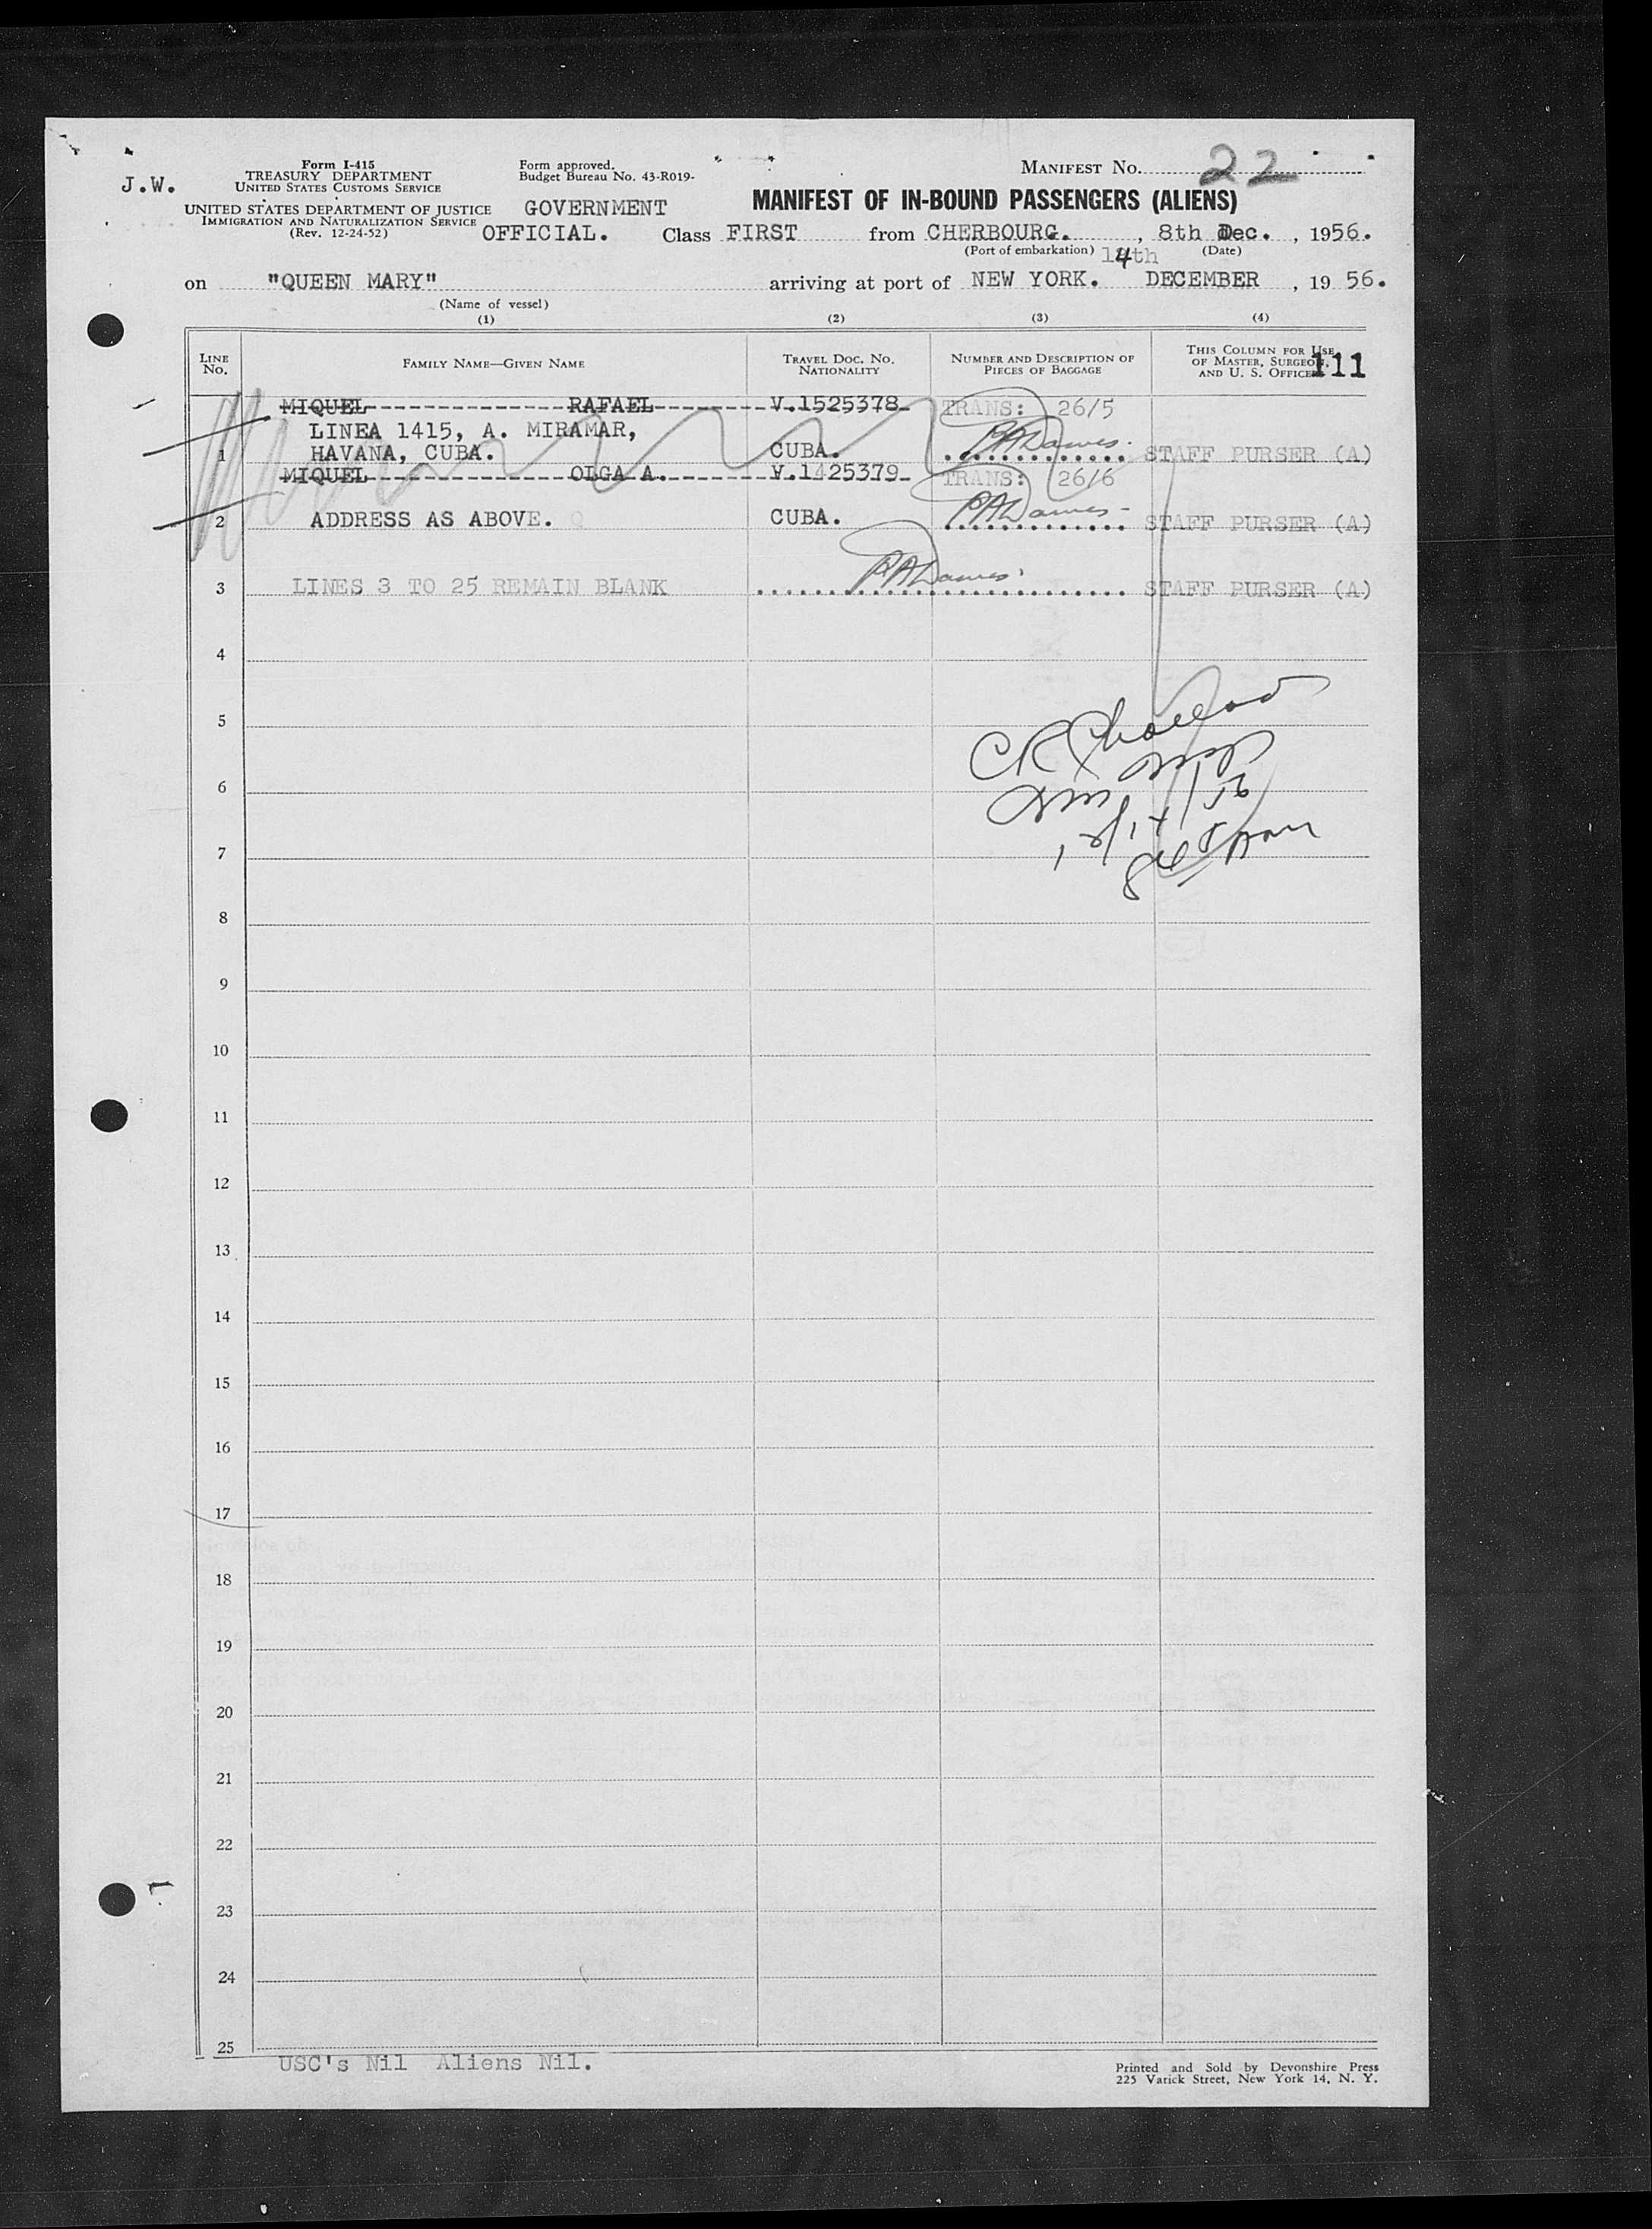 J.W.
Form I-415
TREASURY DEPARTMENT
UNITED STATES CUSTOMS SERVICE
UNITED STATES DEPARTMENT OF JUSTICE
IMMIGRATION AND NATURALIZATION SERVICE
(Rev. 12-24-52)
Form approved.
Budget Bureau No. 43-R019-
GOVERNMENT
OFFICIAL.
MANIFEST No. 22
MANIFEST OF IN-BOUND PASSENGERS (ALIENS)
Class FIRST from CHERBOURG. , 8th Dec. , 1956.
(Port of embarkation) 14th (Date)
on "QUEEN MARY" arriving at port of NEW YORK. DECEMBER , 19 56.
(Name of vessel)
(1) (2) (3) (4)
LINE No.
FAMILY NAME—GIVEN NAME
TRAVEL DOC. No. NATIONALITY
NUMBER AND DESCRIPTION OF PIECES OF BAGGAGE
THIS COLUMN FOR USE OF MASTER, SURGEON, AND U. S. OFFICE
111
MIQUEL RAFAEL V.1525378 TRANS: 26/5
LINEA 1415, A. MIRAMAR,
1 HAVANA, CUBA. CUBA. STAFF PURSER (A)
MIQUEL OLGA A. V.1425379 TRANS: 26/6
2 ADDRESS AS ABOVE. CUBA. STAFF PURSER (A)
3 LINES 3 TO 25 REMAIN BLANK STAFF PURSER (A)
4
5
6
7
8
9
10
11
12
13
14
15
16
17
18
19
20
21
22
23
24
25
USC's Nil Aliens Nil.
Printed and Sold by Devonshire Press
225 Varick Street, New York 14, N. Y.